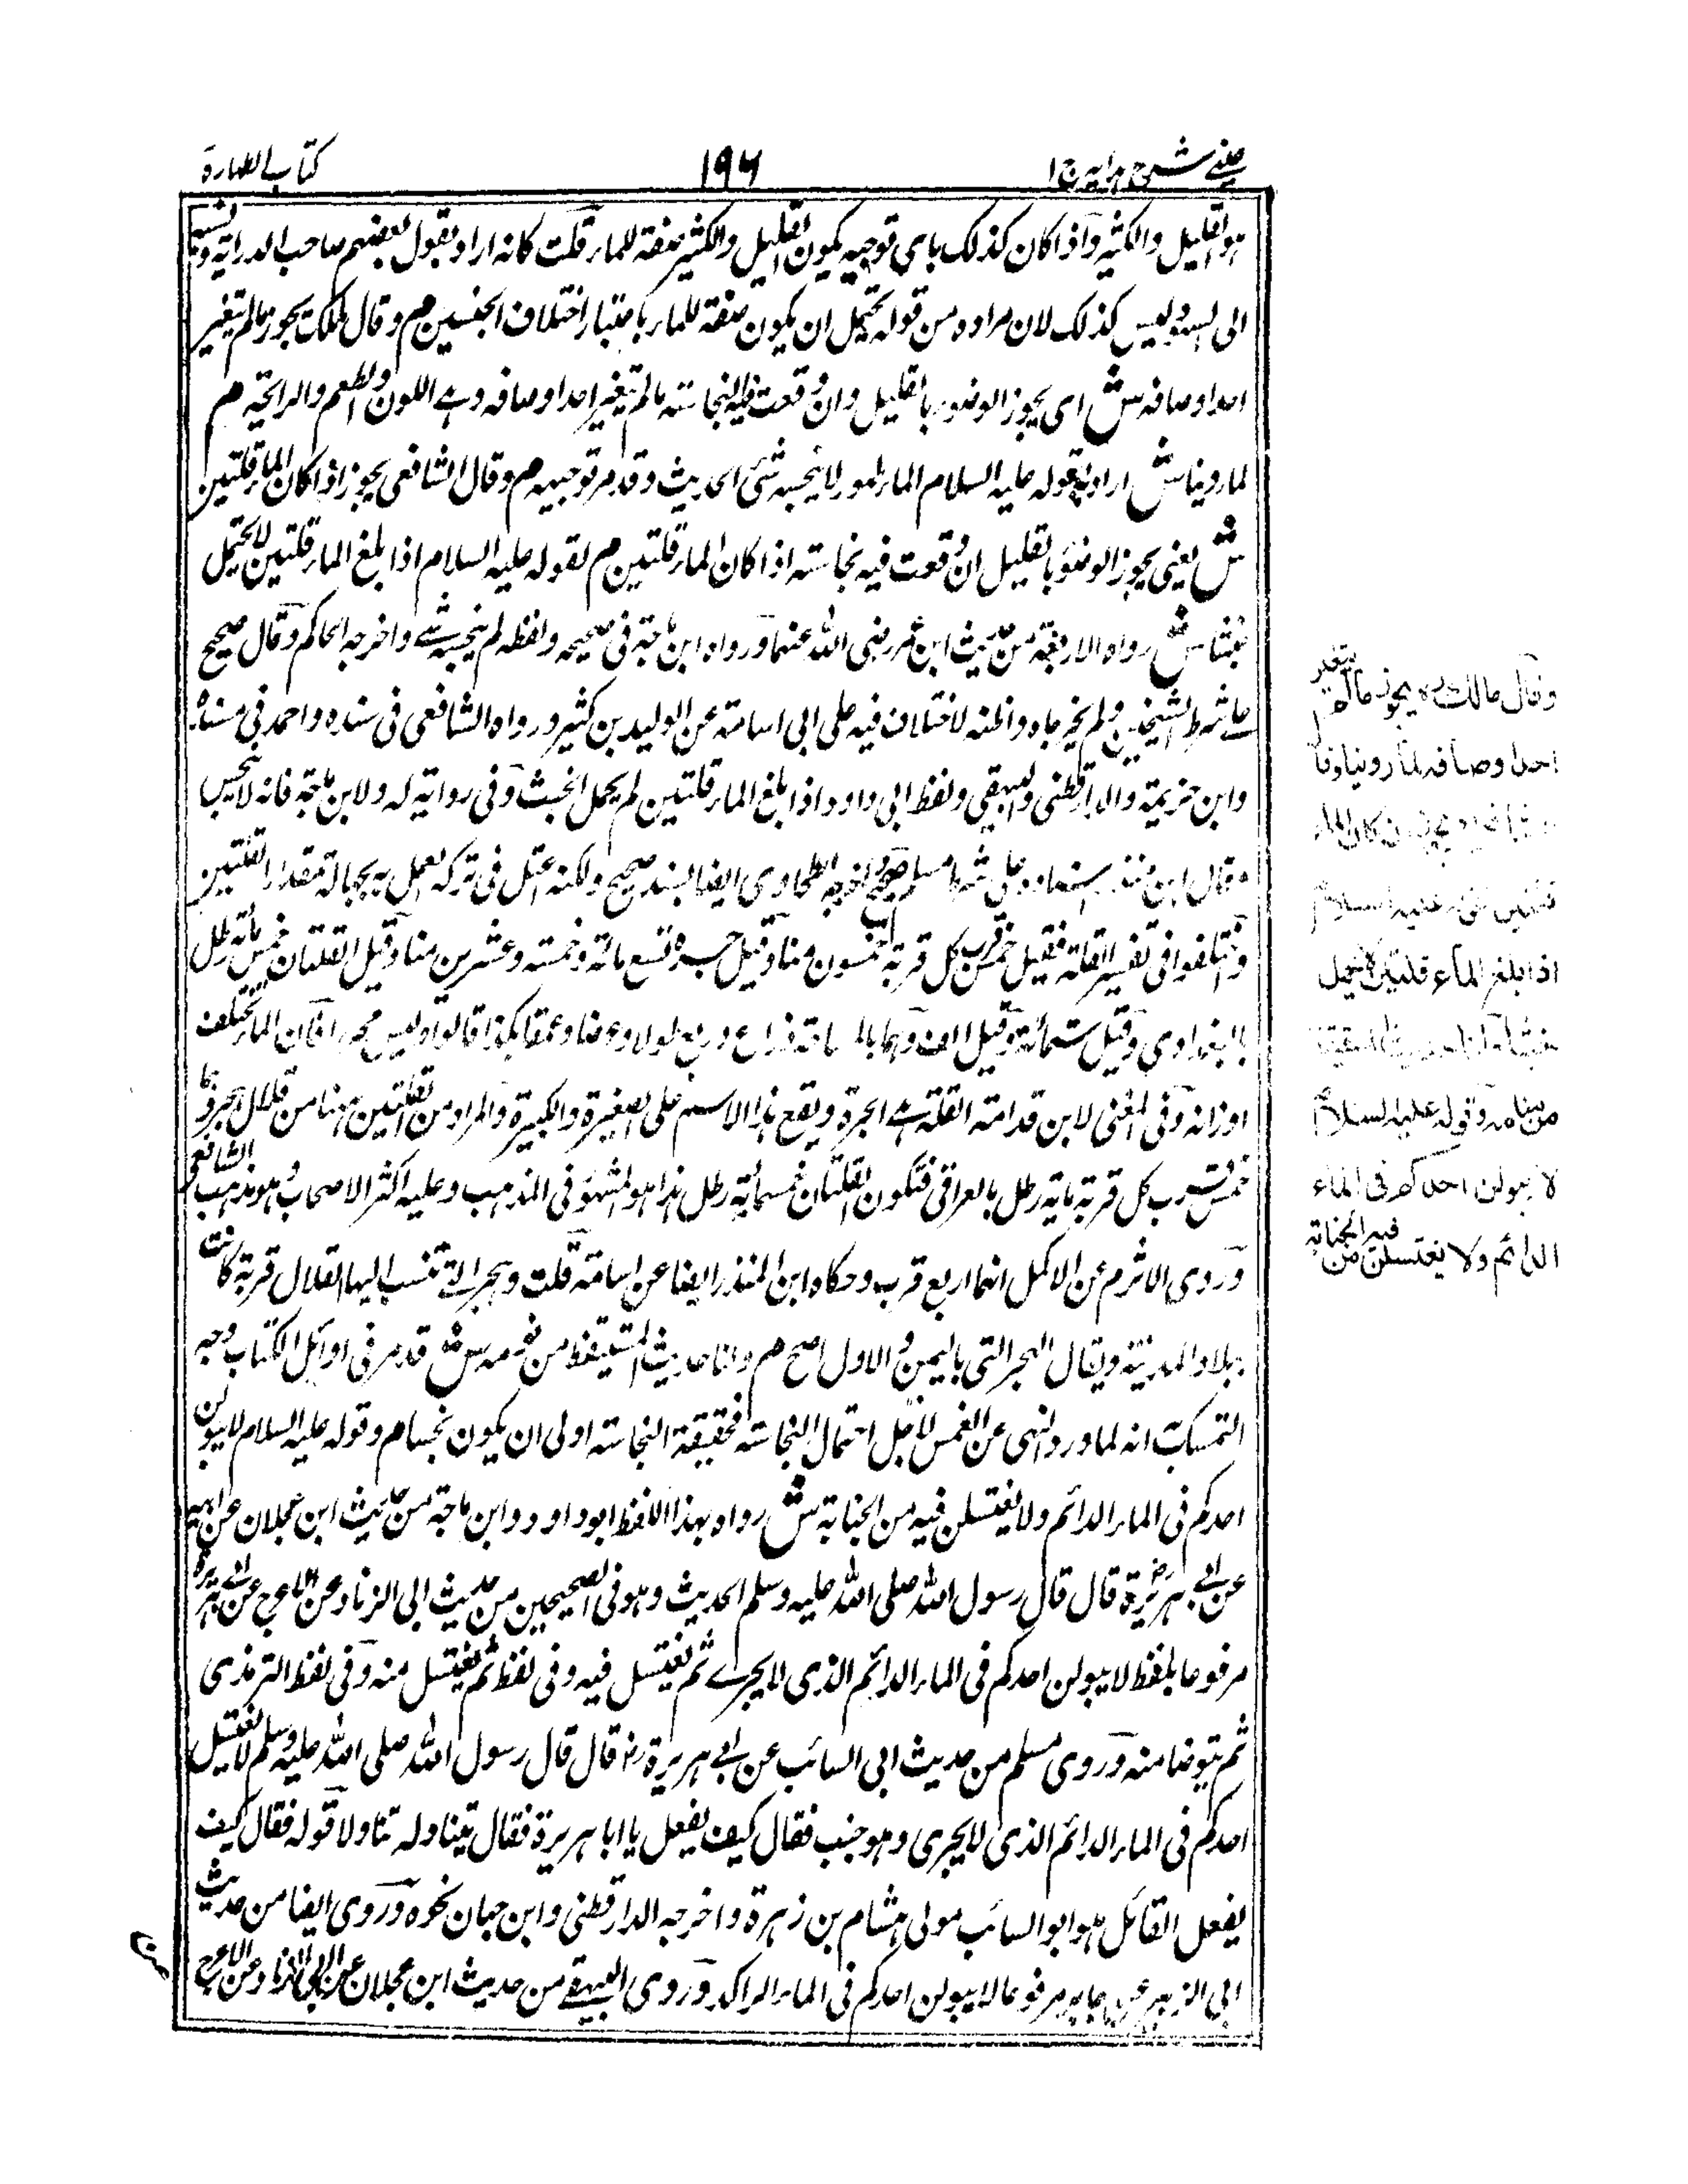 عينى شرح هدايه ج١
١٩٦
كتاب الطهارة
هو القليل والكثير واذا كان كذلك باى توجيه يكون القليل والكثير صفة للماء قلت كانه اراد بقول بعضهم صاحب الدراية
الى السهو وليس كذلك لان مراده من قوله يحتمل ان يكون صفة للماء باعتبار اختلاف الجنسين م وقال مالك يجوز مالم يتغير
احد اوصافه ش اى يجوز الوضوء بالقليل وان وقعت فيه النجاسة مالم يتغير احد اوصافه وهى اللون والطعم والرائحة م
لما روينا ش اراد به قوله عليه السلام الماء طهور لا ينجسه شئ الحديث وقد مر توجيهه م وقال الشافعى يجوز اذا كان الماء قلتين
ش يعنى يجوز الوضوء بالقليل ان وقعت فيه نجاسة اذا كان الماء قلتين م لقوله عليه السلام اذا بلغ الماء قلتين لا يحتمل
خبثا ش رواه الاربعة من حديث ابن عمر رضى الله عنهما ورواه ابن ماجة فى صحيحه ولفظه لم ينجسه شئ واخرجه الحاكم وقال صحيح
على شرط الشيخين ولم يخرجاه واظنه لاختلاف فيه على ابى اسامة عن الوليد بن كثير ورواه الشافعى فى مسنده واحمد فى مسنده
وابن خزيمة والدارقطنى والبيهقى ولفظ ابى داود اذا بلغ الماء قلتين لم يحمل الخبث وفى رواية له ولابن ماجة فانه لا ينجس
وقال ابن منذر اسناده على شرط مسلم صحيح واخرجه الطحاوى ايضا بسند صحيح ولكنه اعتل فى ترك العمل به بجهالة مقدار القلتين
واختلفوا فى تفسير القلة فقيل خمس قرب كل قربة خمسون منا وقيل جرة تسع مائة وخمسة وعشرين منا وقيل القلتان خمس مائة رطل
بالبغدادى وقيل ستمائة وقيل الف وهما بالمساحة ذراع وربع طولا وعرضا وعمقا هكذا قالوا وليس محررا فان الماء تختلف
اوزانه وفى المغنى لابن قدامة القلة هى الجرة ويقع هذا الاسم على الصغيرة والكبيرة والمراد من القلتين ههنا من قلال هجر
خمس قرب كل قربة مائة رطل بالعراقى فتكون القلتان خمسمائة رطل هذا هو المشهور فى المذهب وعليه اكثر الاصحاب وهو مذهب الشافعى
وروى الاثرم عن الاكمل انهما اربع قرب وحكاه ابن المنذر ايضا عن اسامة قلت وهجر التى تنسب اليها القلال قرية كانت
ببلاد المدينة ويقال الهجر التى باليمن والاول اصح م ولنا حديث المستيقظ من نومه ش قد مر فى اوائل الكتاب وجه
التمسك به انه لما ورد النهى عن الغمس لاجل احتمال النجاسة فحقيقة النجاسة اولى ان يكون نجسا م وقوله عليه السلام لا يبولن
احدكم فى الماء الدائم ولا يغتسلن فيه من الجنابة ش رواه بهذا اللفظ ابو داود وابن ماجة من حديث ابن عجلان عن ابيه
عن ابى هريرة قال قال رسول الله صلى الله عليه وسلم الحديث وهو فى الصحيحين من حديث ابى الزناد عن الاعرج عن ابى هريرة
مرفوعا بلفظ لا يبولن احدكم فى الماء الدائم الذى لا يجرى ثم يغتسل فيه وفى لفظ ثم يغتسل منه وفى لفظ الترمذى
ثم يتوضا منه وروى مسلم من حديث ابى السائب عن ابى هريرة رض قال قال رسول الله صلى الله عليه وسلم لا يغتسل
احدكم فى الماء الدائم الذى لا يجرى وهو جنب فقال كيف يفعل يا ابا هريرة فقال يتناوله تناولا قوله فقال كيف
يفعل القائل هو ابو السائب مولى هشام بن زهرة واخرجه الدارقطنى وابن حبان نحوه وروى ايضا من حديث
ابى الزبير عن جابر مرفوعا لا يبولن احدكم فى الماء الراكد وروى البيهقى من حديث ابن عجلان عن ابى الزناد عن الاعرج
عن
وقال مالك ره يجوز مالم يتغير
احد اوصافه لما روينا وقال
الشافعى ره يجوز ان كان الماء
قلتين لقوله عليه السلام
اذا بلغ الماء قلتين لا يحمل
خبثا ولنا حديث المستيقظ
من منامه وقوله عليه السلام
لا يبولن احدكم فى الماء
الدائم ولا يغتسلن فيه من الجنابة